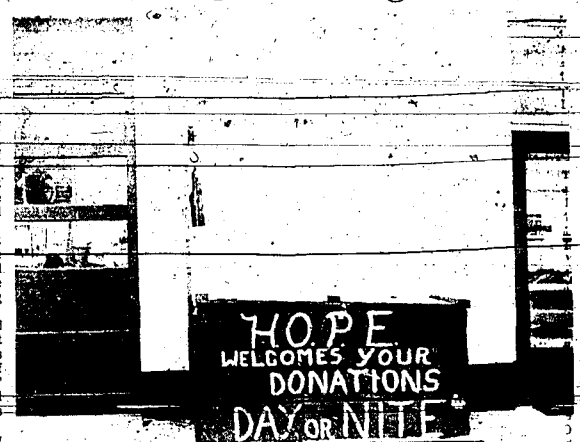 H.O.P.E.
WELCOMES YOUR
DONATIONS
DAY OR NITE